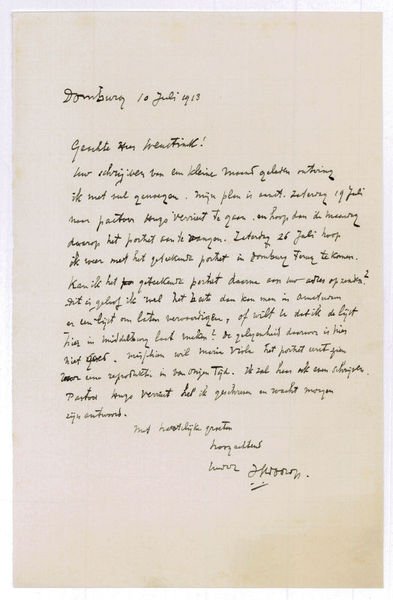 Domburg 10 Juli 1913
Geachte Heer
Uw schrijven van een kleine maand geleden ontving
ik met veel genoegen. Mijn plan is aanst. Zaterdag 19 Juli
naar pastoor Huys Verriest te gaan. en hoop dan de maandag
daarop het portret aan te vangen. Zaterdag 26 Juli hoop
ik weer met het geteekende portret in Domburg terug te komen.
Kan ik het geteekende portret daarna aan uw adres opzenden?
Dit is geloof ik wel het beste dan kan men in Amsterdam
er een lijst om laten vervaardigen, of wilt U dat ik de lijst
hier in Middelburg laat maken? De gelegenheid daarvoor is hier
niet goed. Misschien wil Marie Viola het portret eerst zien
voor een reproductie in Van Onzen Tijd. Ik zal haar ook even schrijven.
Pastoor Huys Verriest heb ik geschreven en wacht morgen
zijn antwoord.
Met hartelijke groeten
hoogachtend
JThToorop.